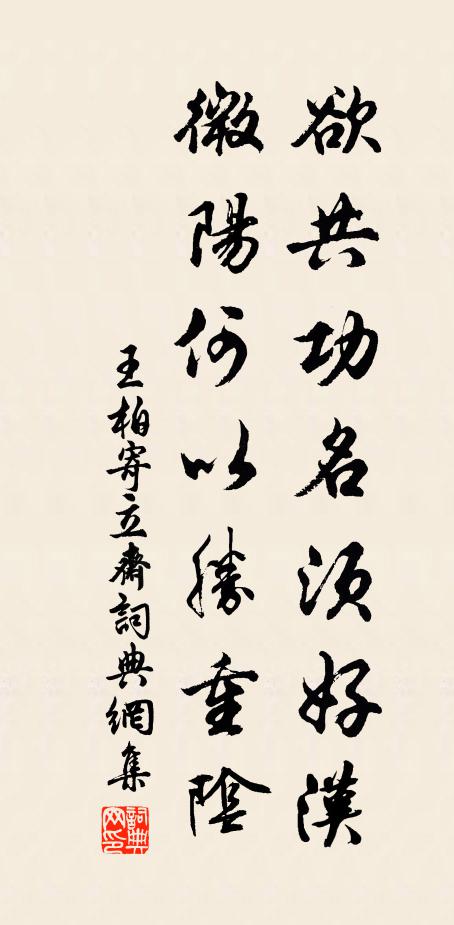 欲共功名須好漢
微陽何以勝重陰
王柏寄立齋詞典網集
詞典網印